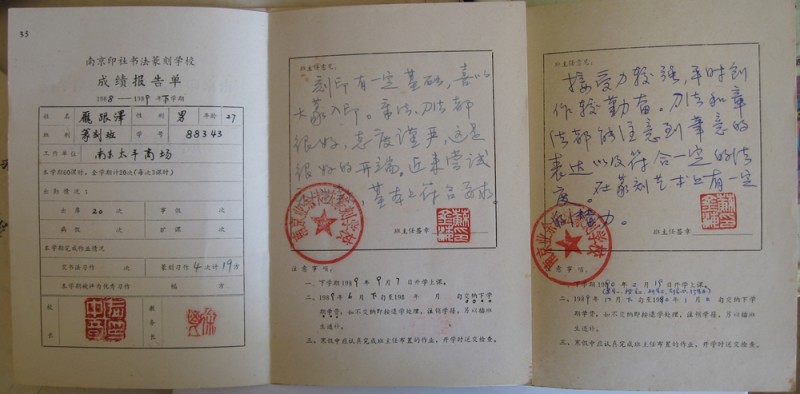 南京印社书法篆刻学校
成绩报告单
1988—1989年下学期
姓名 性别 男 年龄 27
班别 篆刻班 学号 88343
工作单位 南京太平商场
本学期60课时,全学期计20次(每次3课时)
出勤情况:
出席 20 次 事假 次
病假 次 旷课 次
本学期完成作业情况
交书法习作 次 篆刻习作 4 次计 19 方
本学期被评为优秀习作 幅 方
校长 教务员
班主任意见:
刻印有一定基础,喜以
大篆入印。章法、刀法都
很好,态度谨严,这是
很好的开端。近来尝试
基本上符合要求。
班主任签章
注意事项:
一、下学期1989年9月7日开学上课。
二、1989年6月下旬至198 年 月 旬交纳下学
期学费,如不交纳即按退学处理,注销学籍,另以插班
生进行。
三、寒假中应认真完成班主任布置的作业,开学时送交检查。
班主任意见:
接受力较强,平时创
作较勤奋。刀法和章
法都能注意到笔意的
表达以及符合一定的法
度。在篆刻艺术上有一定
的潜力。
班主任签章
注意事项:
一、下学期1990年2月19日开学上课。
期学费,如不交纳即按退学处理,注销学籍,另以插班
生进行。
三、寒假中应认真完成班主任布置的作业,开学时送交检查。